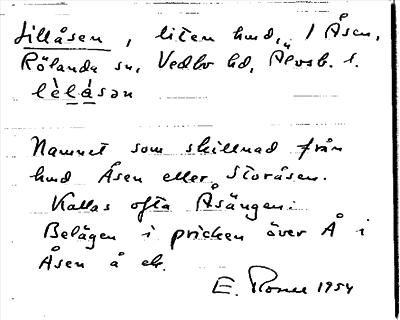 Lillåsen, liten hmd, i Åsen,
Rölanda sn, Vedbo hd, Älvsb. l.
lèlásən
Namnet som skillnad från
hmd Åsen eller Storåsen.
Kallas ofta Åsängen.
Belägen i pricken över Å i
Åsen å ek.
E. Rosell 1954